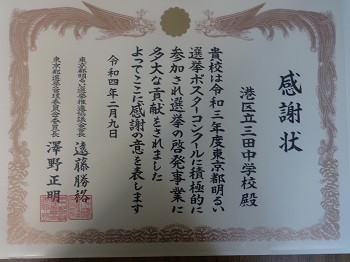 感謝状
港区立三田中学校殿
貴校は令和三年度東京都明るい
選挙ポスターコンクールに積極的に
参加され選挙の啓発事業に
多大な貢献をされました
よってここに感謝の意を表します
令和四年二月九日
東京都明るい選挙推進協議会会長
遠藤勝裕
東京都選挙管理委員会委員長
澤野正明